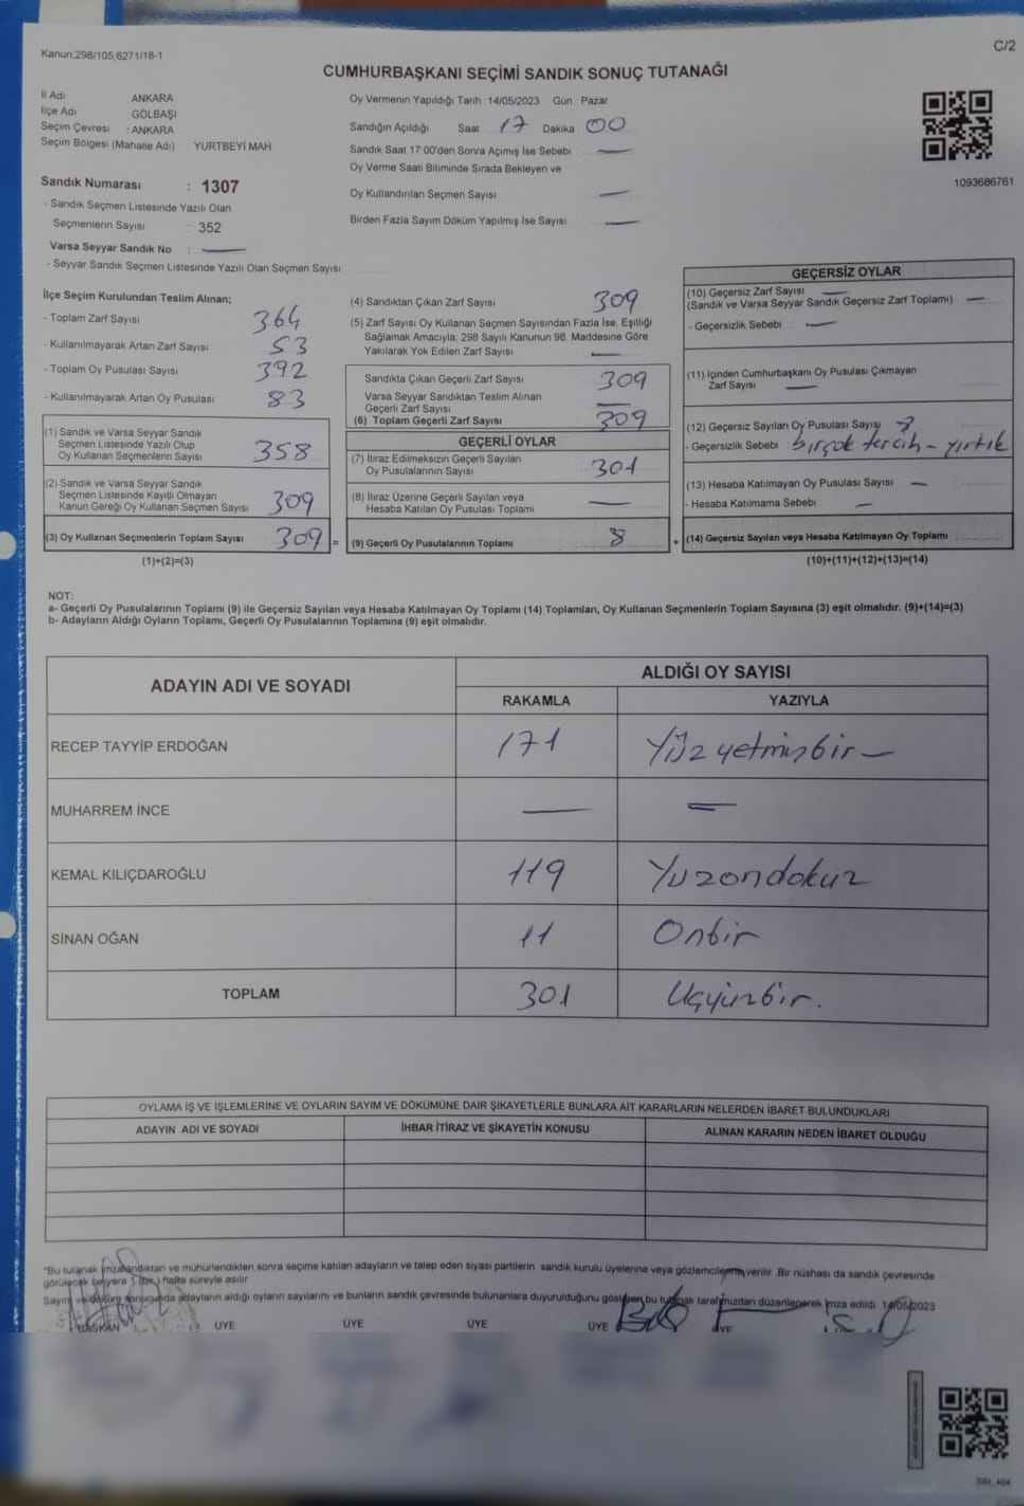 C/2
Kanun:298/105,6271/18-1
CUMHURBAŞKANI SEÇİMİ SANDIK SONUÇ TUTANAĞI
İl Adı ANKARA
İlçe Adı GÖLBAŞI
Seçim Çevresi : ANKARA
Seçim Bölgesi (Mahalle Adı) YURTBEYİ MAH
Sandık Numarası : 1307
- Sandık Seçmen Listesinde Yazılı Olan
Seçmenlerin Sayısı 352
Varsa Seyyar Sandık No :
- Seyyar Sandık Seçmen Listesinde Yazılı Olan Seçmen Sayısı
Oy Vermenin Yapıldığı Tarih :14/05/2023 Gün : Pazar
Sandığın Açıldığı Saat 17 Dakika 00
Sandık Saat 17:00'den Sonra Açılmış İse Sebebi
Oy Verme Saati Bitiminde Sırada Bekleyen ve
Oy Kullandırılan Seçmen Sayısı
Birden Fazla Sayım Döküm Yapılmış İse Sayısı
1093686761
İlçe Seçim Kurulundan Teslim Alınan;
- Toplam Zarf Sayısı 364
- Kullanılmayarak Artan Zarf Sayısı 53
- Toplam Oy Pusulası Sayısı 392
- Kullanılmayarak Artan Oy Pusulası 83
(1) Sandık ve Varsa Seyyar Sandık
Seçmen Listesinde Yazılı Olup
Oy Kullanan Seçmenlerin Sayısı 358
(2) Sandık ve Varsa Seyyar Sandık
Seçmen Listesinde Kayıtlı Olmayan
Kanun Gereği Oy Kullanan Seçmen Sayısı 309
(3) Oy Kullanan Seçmenlerin Toplam Sayısı 309 =
(1)+(2)=(3)
(4) Sandıktan Çıkan Zarf Sayısı 309
(5) Zarf Sayısı Oy Kullanan Seçmen Sayısından Fazla İse, Eşitliği
Sağlamak Amacıyla; 298 Sayılı Kanunun 98. Maddesine Göre
Yakılarak Yok Edilen Zarf Sayısı
Sandıkta Çıkan Geçerli Zarf Sayısı 309
Varsa Seyyar Sandıktan Teslim Alınan
Geçerli Zarf Sayısı
(6) Toplam Geçerli Zarf Sayısı 309
GEÇERLİ OYLAR
(7) İtiraz Edilmeksizin Geçerli Sayılan
Oy Pusulalarının Sayısı 301
(8) İtiraz Üzerine Geçerli Sayılan veya
Hesaba Katılan Oy Pusulası Toplamı
(9) Geçerli Oy Pusulalarının Toplamı 8 +
GEÇERSİZ OYLAR
(10) Geçersiz Zarf Sayısı
(Sandık ve Varsa Seyyar Sandık Geçersiz Zarf Toplamı)
- Geçersizlik Sebebi
(11) İçinden Cumhurbaşkanı Oy Pusulası Çıkmayan
Zarf Sayısı
(12) Geçersiz Sayılan Oy Pusulası Sayısı
- Geçersizlik Sebebi birçok tercih - yırtık
(13) Hesaba Katılmayan Oy Pusulası Sayısı
- Hesaba Katılmama Sebebi
(14) Geçersiz Sayılan veya Hesaba Katılmayan Oy Toplamı
(10)+(11)+(12)+(13)=(14)
NOT:
a- Geçerli Oy Pusulalarının Toplamı (9) ile Geçersiz Sayılan veya Hesaba Katılmayan Oy Toplamı (14) Toplamları, Oy Kullanan Seçmenlerin Toplam Sayısına (3) eşit olmalıdır. (9)+(14)=(3)
b- Adayların Aldığı Oyların Toplamı, Geçerli Oy Pusulalarının Toplamına (9) eşit olmalıdır.
ADAYIN ADI VE SOYADI ALDIĞI OY SAYISI
RAKAMLA YAZIYLA
RECEP TAYYİP ERDOĞAN 171 Yüzyetmişbir
MUHARREM İNCE
KEMAL KILIÇDAROĞLU 119 Yuzondokuz
SİNAN OĞAN 11 Onbir
TOPLAM 301 Uçyüzbir.
OYLAMA İŞ VE İŞLEMLERİNE VE OYLARIN SAYIM VE DÖKÜMÜNE DAİR ŞİKAYETLERLE BUNLARA AİT KARARLARIN NELERDEN İBARET BULUNDUKLARI
ADAYIN ADI VE SOYADI İHBAR İTİRAZ VE ŞİKAYETİN KONUSU ALINAN KARARIN NEDEN İBARET OLDUĞU
"Bu tutanak imzalandıktan ve mühürlendikten sonra seçime katılan adayların ve talep eden siyasi partilerin sandık kurulu üyelerine veya gözlemcilerine verilir. Bir nüshası da sandık çevresinde
görülecek bir yere 1 (bir) hafta süreyle asılır
Sayım döküm sonucunda adayların aldığı oyların sayılarını ve bunların sandık çevresinde bulunanlara duyurulduğunu gösteren bu tutanak tarafımızdan düzenlenerek imza edildi. 14/05/2023
BAŞKAN ÜYE ÜYE ÜYE ÜYE ÜYE